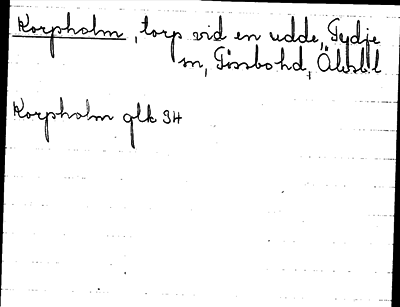 Korpholm, torp vid en udde, Tydje
sn, Tössbo hd, Älvsbl
Korpholm glk 34